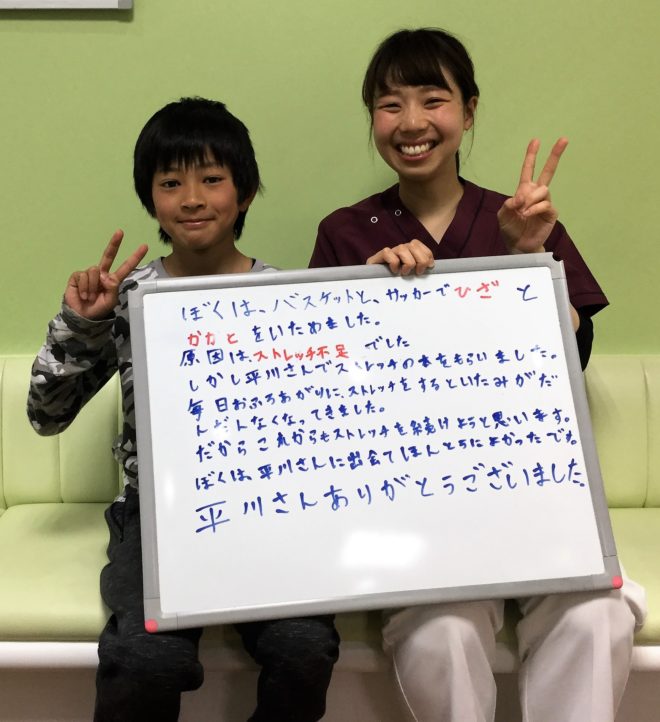 ぼくは、バスケットと、サッカーでひざと
かかとをいためました。
原因は、ストレッチ不足でした
しかし平川さんでストレッチの本をもらいました。
毎日おふろあがりに、ストレッチをするといたみがだ
んだんなくなってきました。
だからこれからもストレッチを続けようと思います。
ぼくは、平川さんに出会てほんとうによかったです。
平川さんありがとうございました。